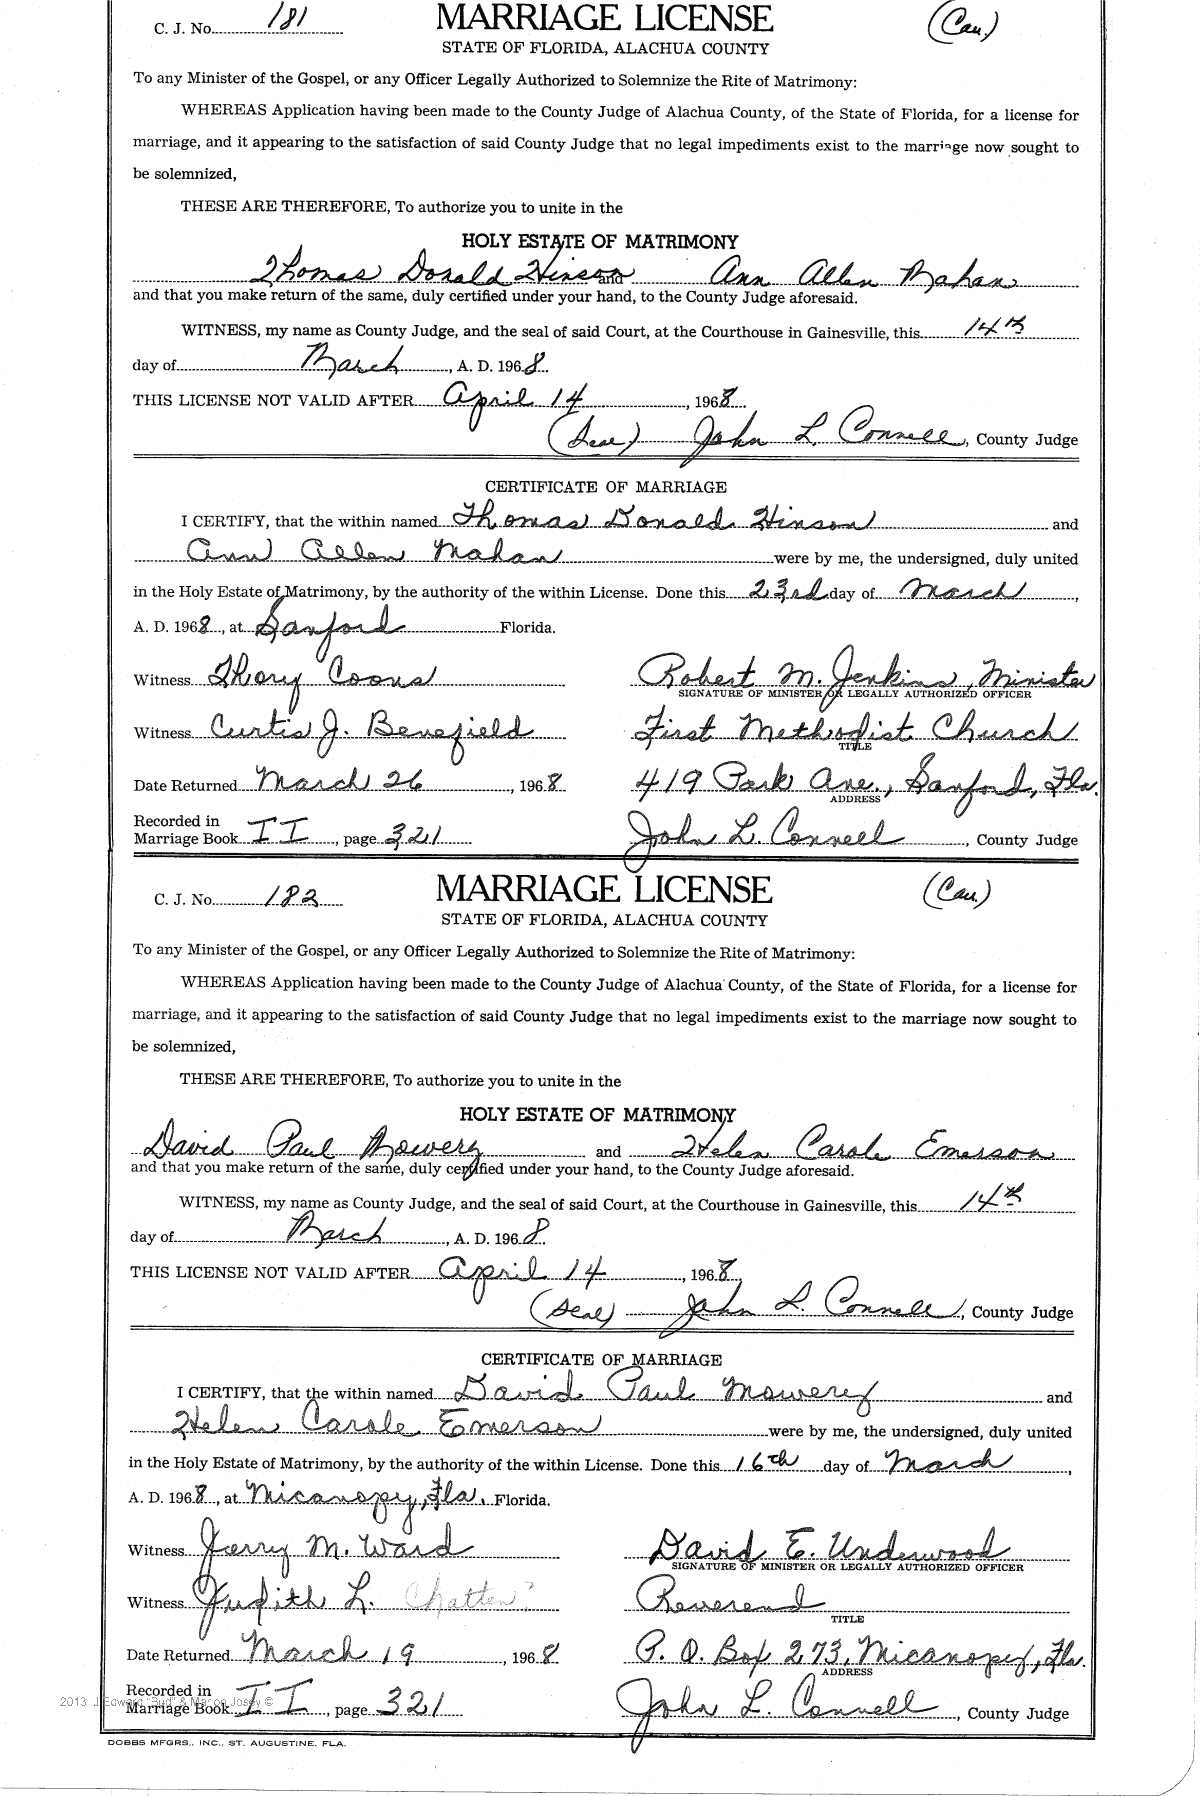 C. J. No. 181 MARRIAGE LICENSE (Cau.)
STATE OF FLORIDA, ALACHUA COUNTY
To any Minister of the Gospel, or any Officer Legally Authorized to Solemnize the Rite of Matrimony:
WHEREAS Application having been made to the County Judge of Alachua County, of the State of Florida, for a license for
marriage, and it appearing to the satisfaction of said County Judge that no legal impediments exist to the marriage now sought to
be solemnized,
THESE ARE THEREFORE, To authorize you to unite in the
HOLY ESTATE OF MATRIMONY
Thomas Donald Hinson and Ann Allen Mahan
and that you make return of the same, duly certified under your hand, to the County Judge aforesaid.
WITNESS, my name as County Judge, and the seal of said Court, at the Courthouse in Gainesville, this 14th
day of March, A. D. 1968.
THIS LICENSE NOT VALID AFTER April 14, 1968
(Seal) John L. Connell, County Judge
CERTIFICATE OF MARRIAGE
I CERTIFY, that the within named Thomas Donald Hinson and
Ann Allen Mahan were by me, the undersigned, duly united
in the Holy Estate of Matrimony, by the authority of the within License. Done this 23rd day of March,
A. D. 1968, at Sanford Florida.
Witness Coons Robert M. Jenkins, Minister
SIGNATURE OF MINISTER OR LEGALLY AUTHORIZED OFFICER
Witness Curtis J. Benefield First Methodist Church
TITLE
Date Returned March 26, 1968 419 Park Ave., Sanford, Fla.
ADDRESS
Recorded in
Marriage Book II, page 321 John L. Connell, County Judge
C. J. No. 182 MARRIAGE LICENSE (Cau.)
STATE OF FLORIDA, ALACHUA COUNTY
To any Minister of the Gospel, or any Officer Legally Authorized to Solemnize the Rite of Matrimony:
WHEREAS Application having been made to the County Judge of Alachua County, of the State of Florida, for a license for
marriage, and it appearing to the satisfaction of said County Judge that no legal impediments exist to the marriage now sought to
be solemnized,
THESE ARE THEREFORE, To authorize you to unite in the
HOLY ESTATE OF MATRIMONY
David Paul Mowery and Helen Carole Emerson
and that you make return of the same, duly certified under your hand, to the County Judge aforesaid.
WITNESS, my name as County Judge, and the seal of said Court, at the Courthouse in Gainesville, this 14th
day of March, A. D. 1968.
THIS LICENSE NOT VALID AFTER April 14, 1968
(Seal) John L. Connell, County Judge
CERTIFICATE OF MARRIAGE
I CERTIFY, that the within named David Paul Mowery and
Helen Carole Emerson were by me, the undersigned, duly united
in the Holy Estate of Matrimony, by the authority of the within License. Done this 16th day of March,
A. D. 1968, at Micanopy, Fla. Florida.
Witness Jerry M. Ward David E. Underwood
SIGNATURE OF MINISTER OR LEGALLY AUTHORIZED OFFICER
Witness Judith L. Chatten? Reverend
TITLE
Date Returned March 19, 1968 P. O. Box 273, Micanopy, Fla.
ADDRESS
Recorded in
2013 J Edward "Bud" & Marion Josey ©
Marriage Book II, page 321 John L. Connell, County Judge
DOBBS MFGRS., INC., ST. AUGUSTINE, FLA.